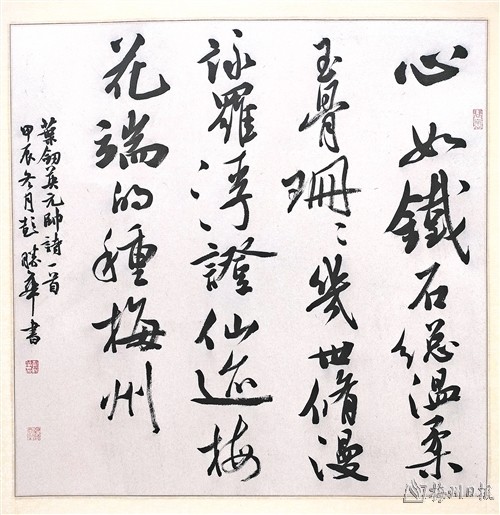 心如鐵石總温柔
玉骨珊々幾世脩漫
詠羅浮證仙迹梅
花端的種梅州
葉劍英元帥詩一首
甲辰冬月彭勝華書
梅州日报